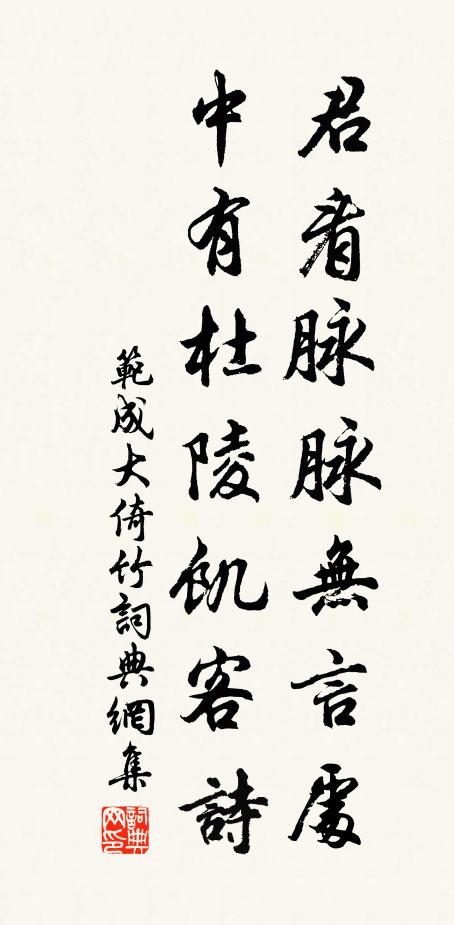 君看脉脉無言處
中有杜陵飢客詩
範成大倚竹詞典網集
詞典
网印